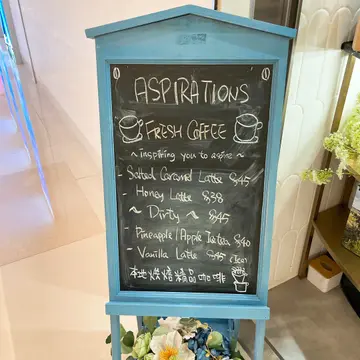 ASPIRATIONS
FRESH COFFEE
~ inspiring you to aspire ~
- Salted Caramel Latte $45
- Honey Latte $38
~ Dirty ~ $45
- Pineapple/Apple Ice tea $40
- Vanilla Latte $45 (Ice)
本地烘焙精品咖啡